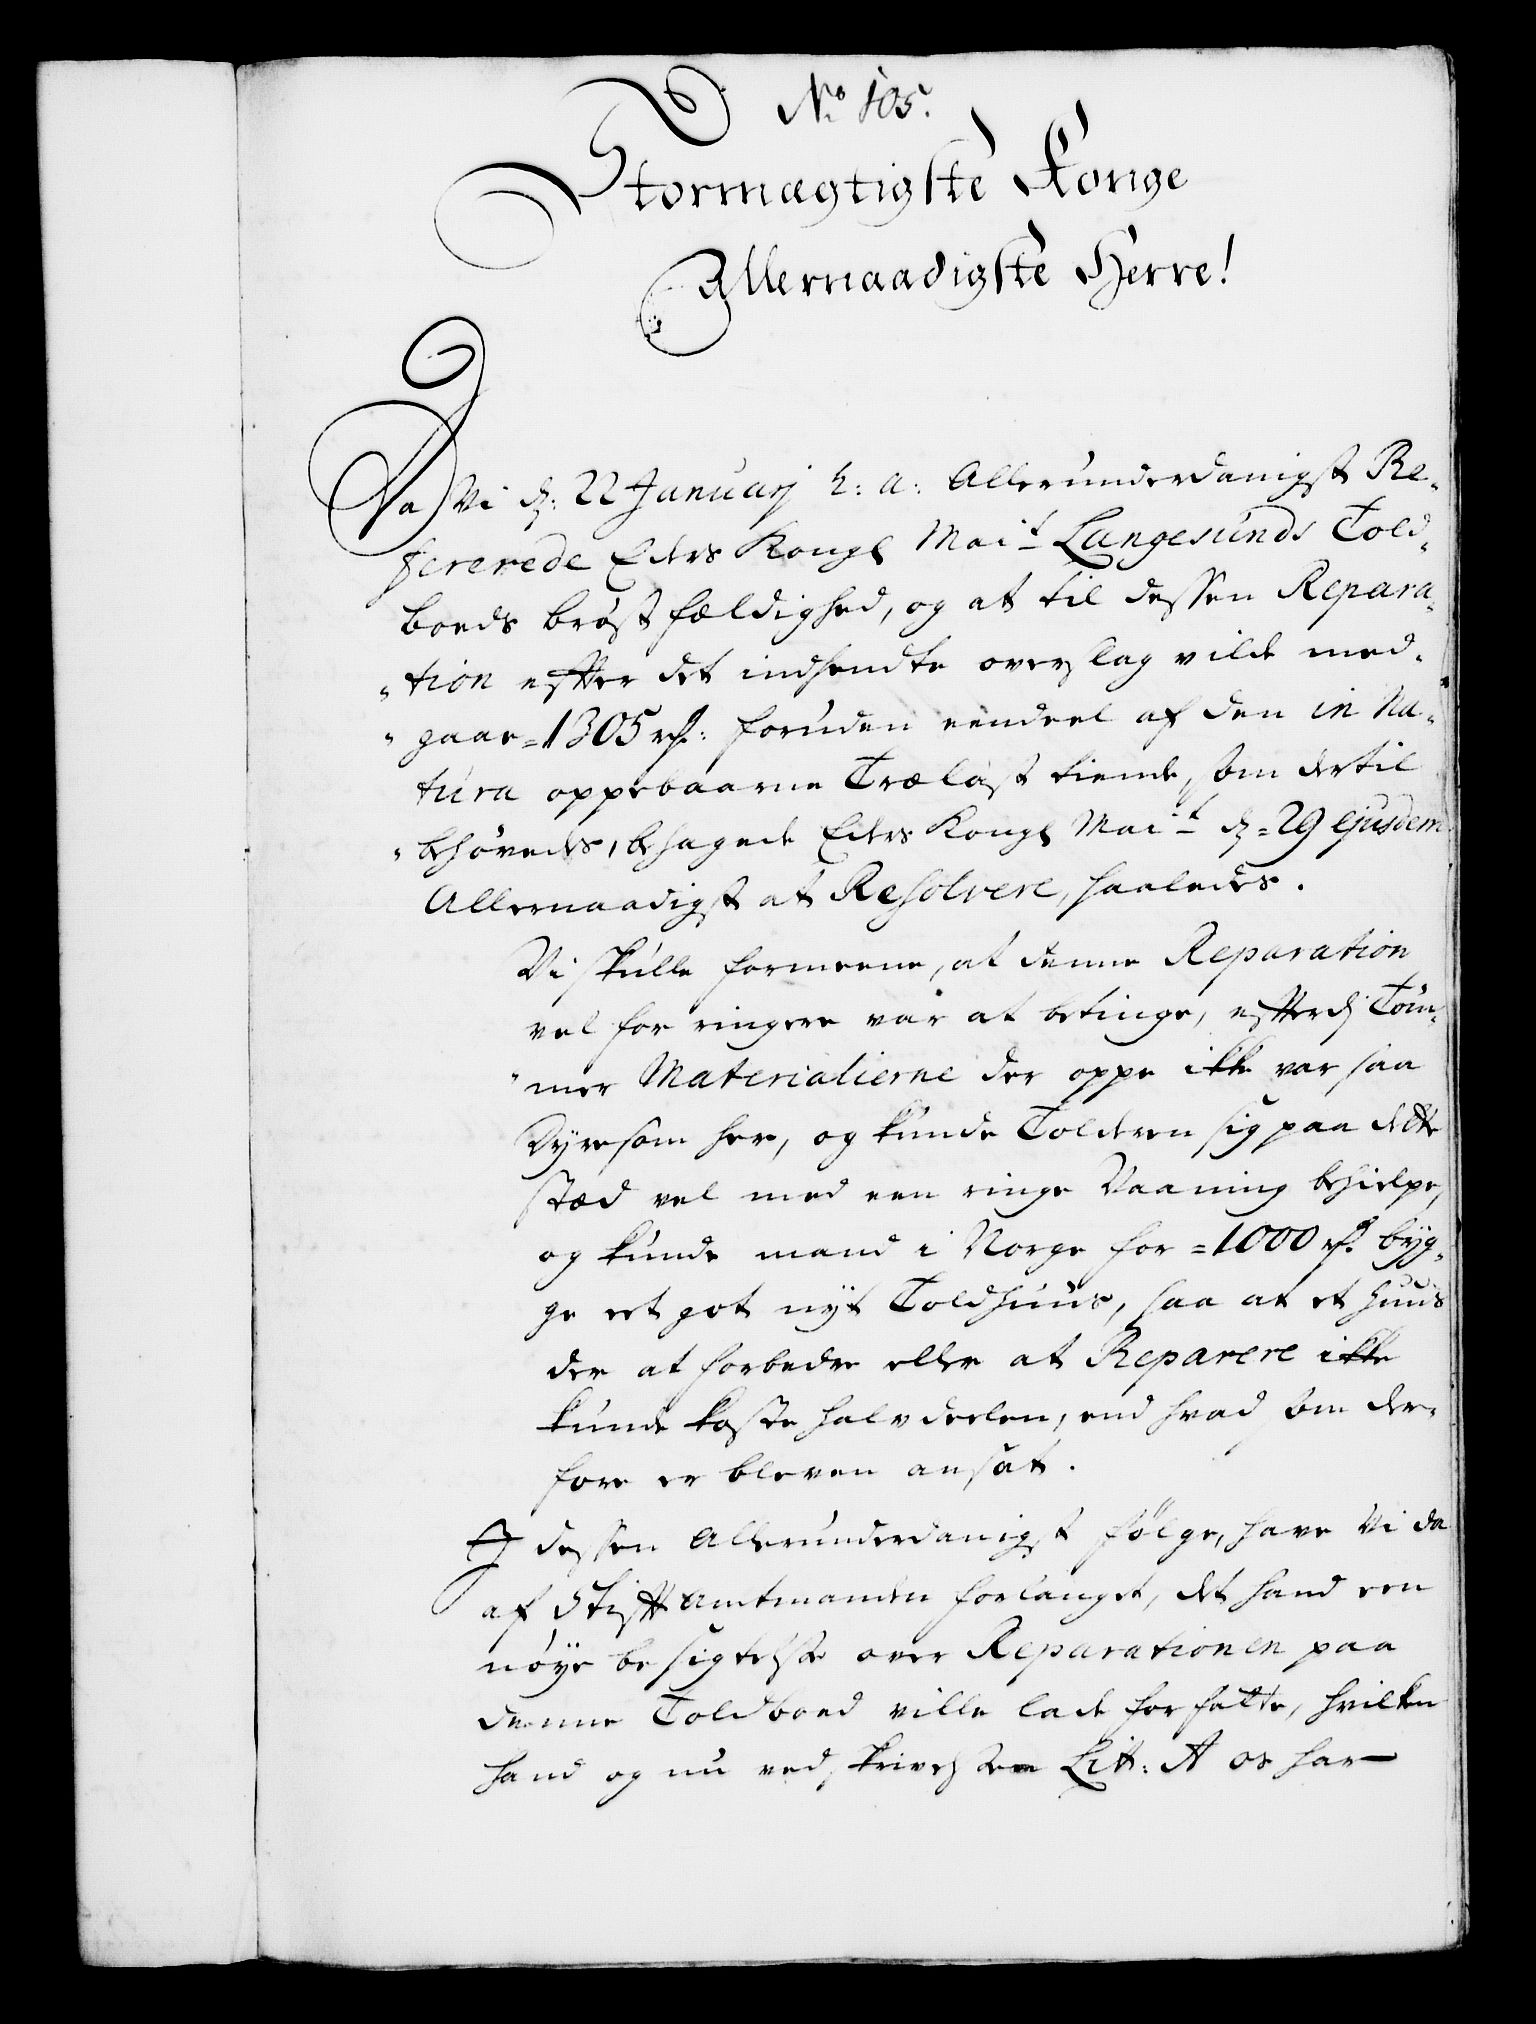 No 105.
Stormægtigste Konge
Allernaadigste Herre!
Da Vi d: 22 Januarj h: a: Allerunderdanigst Re-
fererede Eders Kongl Mait Langesunds Told-
boeds brøstfældighed, og at til dessen Repara-
"tion efter det indsendte overslag vilde med-
"gaae =1305 rd: foruden eendeel af den in Na-
tura oppebaarne Trælast tiende, som dertil
"behøvedes, behagede Eders Kongl Mait d =29 ejusdem
Allernaadigst at Resolvere, saaledes.
Vi skulle formeene, at denne Reparation
vel for ringere var at betinge, efterdj Töm-
"mer Materialierne der oppe ikke var saa
Dyre som her, og kunde Tolderen sig paa dette
stæd vel med een ringe Vaaning behielpe,
og kunde mand i Norge for =1000 rd. byg-
ge et got nyt Toldhuus, saa at et huus
der at forbedre eller at Reparere ikke
kunde koste halvdeelen, end hvad som der-
fore er bleven ansat.
I dessen Allerunderdanigst følge, have Vi da
af Stiftamtmanden forlanget, det hand een
nøye besigtelse over Reparationen paa
denne Toldboed ville lade forfatte, hvilken
hand og nu ved skrivelsen Litt: A os har